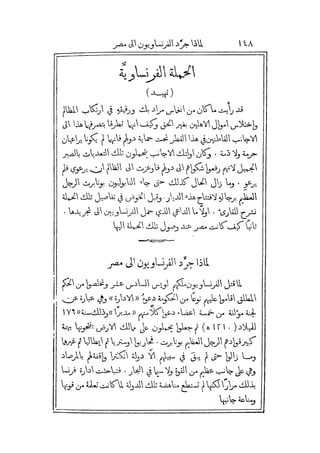 ١٤٨ لماذا جرَّد الفرنساويون الى مصر
الحملة الفرنساويَّة
( تمهيد )
قد رأيت ما كان من انغاس مراد بك ورفيقهِ في ارتكاب المظالم
واختلاس اموال الاهلين بغير الحق وكيف انهما تطرقا بتصرفهما هذا الى
الاجانب القاطنين في هذا القطر تحت حماية دولهم فانهما لم يكونا يراعيان
حرمة ولا ذمة . وكان اولئك الاجانب يتحملون تلك التعديات بالصبر
الجميل لانهم رفعوا شكواهم الى دولهم فاوعزت الى الظالم ان يرعوي فلم
يرعوِ . وما زال الحال كذلك حتى جاء النابوليون بونابرت الرجل
العظيم برجالهِ لافتتاح هذه الديار . وقبل الخوض في تفاصيل تلك الحملة
نشرح للقارئ . اولاً ما الداعي الذي حمل الفرنساويين الى تجريدها .
ثانياً كيف كانت مصر عند وصول تلك الحملة اليها
لماذا جرَّد الفرنساويون الى مصر
لما قتل الفرنساويون ملكهم لويس السادس عشر وتخلصوا من الحكم
المطلق اقاموا عليهم نوعاً من الحكومة دعوهُ «الادارة» وهي عبارة عن
لجنة مؤلفة من خمسة اعضاء دعوا كلاًّ منهم «مديراً» وذلك سنة ١٧٩٦
للميلاد (١٢١٠ ه) ثم جعلوا يحملون على ممالك الارض افتتحوها بهمة
كبير قوادهم الرجل العظيم بونابرت . فحاربوا اوستريا ثم ايطاليا ثم غيرها
وما زالوا حتى لم يبقَ في سبيلهم الا دولة انكلترا واقفة لهم بالمرصاد
وهي على جانب عظيم من القوة ولا سيما في البحار . فتباحثت ادارة فرنسا
بذلك مراراً لكنها لم تستطع مناهضة تلك الدولة لما كانت تعلمهُ من قوتها
ومناعة جانبها